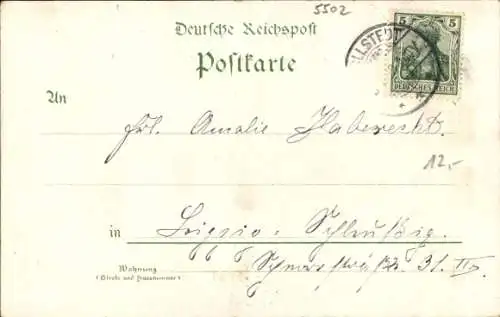 5502
Deutsche Reichspost
Postkarte
5 5
DEUTSCHES REICH
An
Frl. Amalie Haberecht.
12,-
in Leipzig-Schleußig.
31. III
Wohnung
(Straße und Hausnummer)